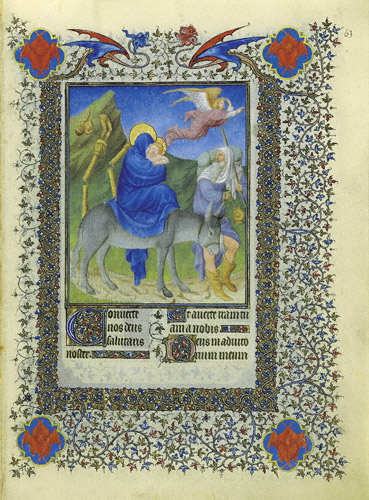 63
Conuerte
nos deus
salutaris
noster.
Et auerte iram tu
am a nobis
Deus in adiuto
rium meum